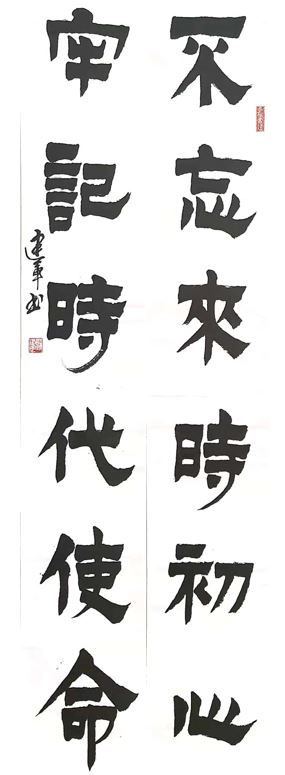 不忘來時初心
牢記時代使命
建军书